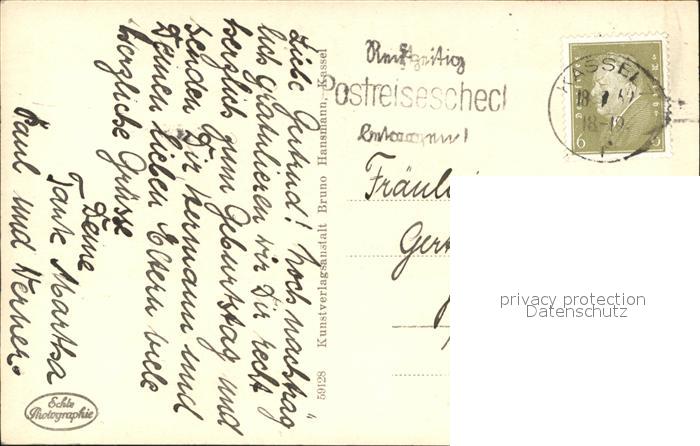 Liebe Gertrud! Noch nachträg"
lich gratulieren wir Dir recht
herzlich zum Geburtstag und
senden Dir Hermann und
Deinen lieben Eltern viele
herzliche Grüsse
Deine
Tante Martha
Paul und Werner.
Echte
Photographie
59128 Kunstverlagsanstalt Bruno Hansmann, Kassel
Rechtzeitig
Postreisescheck
besorgen!
KASSEL
18
18-19
6
6
Fräulei
Gert
privacy protection
Datenschutz